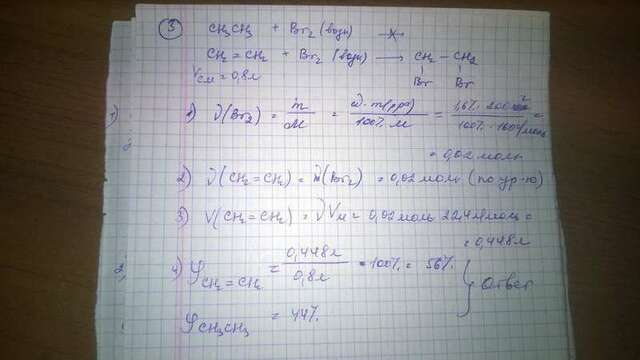 3 CH₃CH₃ + Br₂ (водн) ⇸
CH₂ = CH₂ + Br₂ (водн) → CH₂ – CH₂
Br Br
Vсм = 0,8л
1) ν(Br₂) = m/M = ω·m(р-ра)/100%·M = 1,6%·200г/100%·160г/моль =
= 0,02 моль
2) ν(CH₂=CH₂) = ν(Br₂) = 0,02 моль (по ур-ю)
3) V(CH₂=CH₂) = νVм = 0,02 моль 22,4 л/моль =
= 0,448л
4) φ CH₂=CH₂ = 0,448л/0,8л · 100% = 56%
φ CH₃CH₃ = 44%
} Ответ